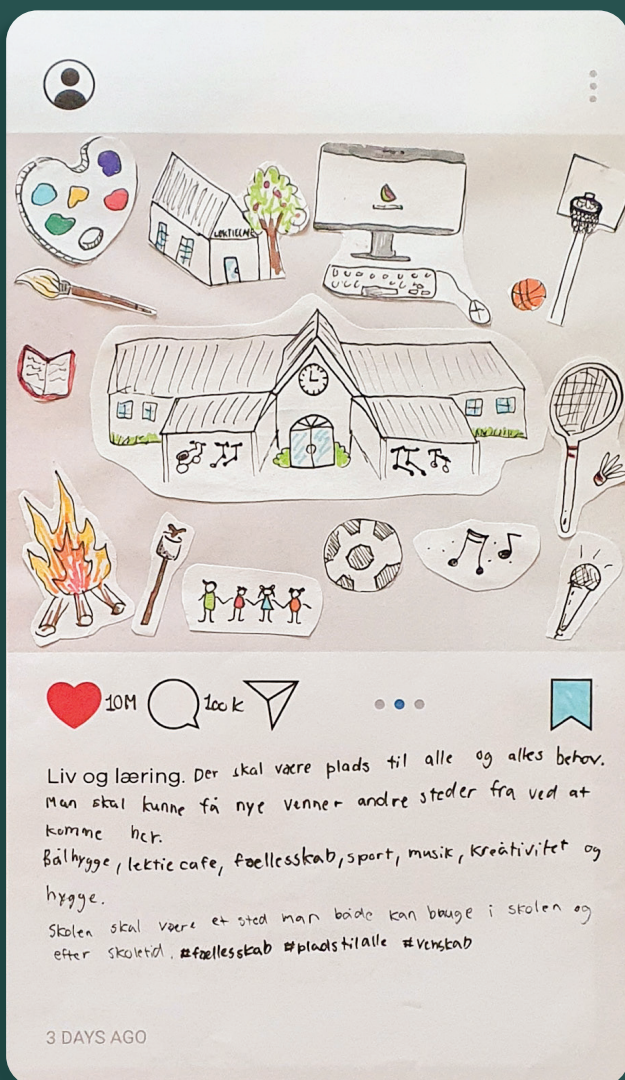 LEKTIECAFE
10M
100K
Liv og læring. Der skal være plads til alle og alles behov.
Man skal kunne få nye venner andre steder fra ved at
komme her.
Bålhygge, lektie cafe, fællesskab, sport, musik, kreativitet og
hygge.
Skolen skal være et sted man både kan bruge i skolen og
efter skoletid. #fællesskab #pladstilalle #venskab
3 DAYS AGO